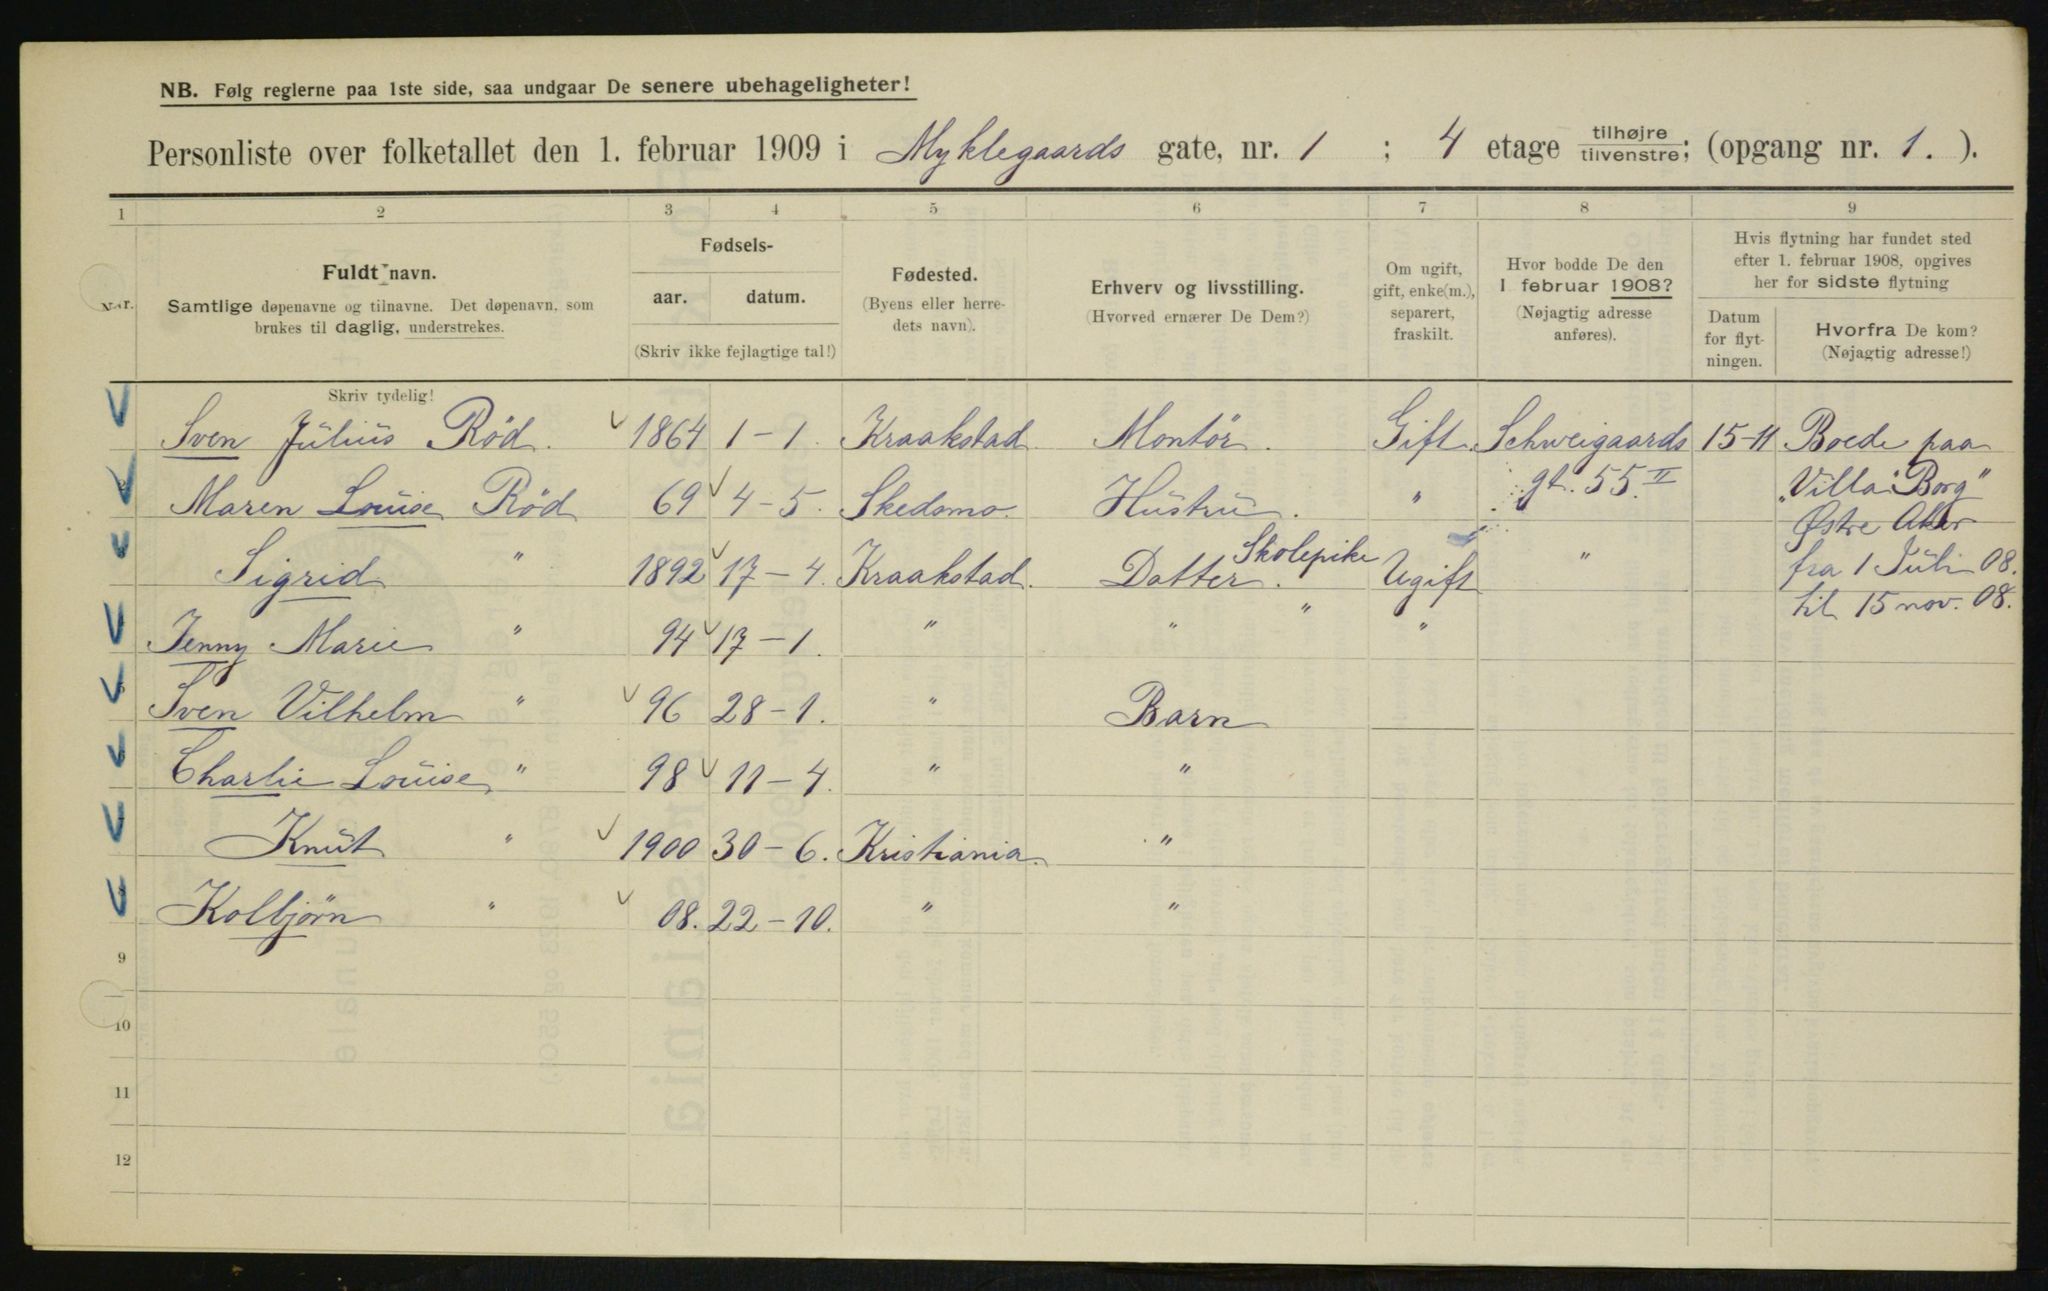 NB. Følg reglerne paa 1ste side, saa undgaar De senere ubehageligheter!
Personliste over folketallet den 1. februar 1909 i Myklegaards gate, nr. 1 ; 4 etage tilhøjre tilvenstre; (opgang nr. 1. ).
1 2 3 4 5 6 7 8 9
Nr.
Fuldt navn.
Samtlige døpenavne og tilnavne. Det døpenavn, som
brukes til daglig, understrekes.
Fødsels-
aar. datum.
(Skriv ikke fejlagtige tal!)
Fødested.
(Byens eller herre-
dets navn).
Erhverv og livsstilling.
(Hvorved ernærer De Dem?)
Om ugift,
gift, enke(m.),
separert,
fraskilt.
Hvor bodde De den
1 februar 1908?
(Nøjagtig adresse
anføres).
Hvis flytning har fundet sted
efter 1. februar 1908, opgives
her for sidste flytning
Datum
for flyt-
ningen.
Hvorfra De kom?
(Nøjagtig adresse!)
Skriv tydelig!
Sven Julius Röd. 1864 1-1. Kraakstad Montör. Gift. Schweigaards 15-11 Boede paa
Maren Louise Röd 69 4-5. Skedsmo. Hustru. " gt. 55. II "Villa Borg"
Østre Aker
Sigrid " 1892 17-4. Kraakstad. Datter. Skolepike Ugift " fra 1 Juli 08.
til 15 nov. 08.
Jenny Marie " 94 17-1. " " " "
Sven Vilhelm " 96 28-1. " Barn
Charlie Louise " 98 11-4. " "
Knut " 1900 30-6. Kristiania. "
Kolbjørn " 08. 22-10. " "
9
10
11
12